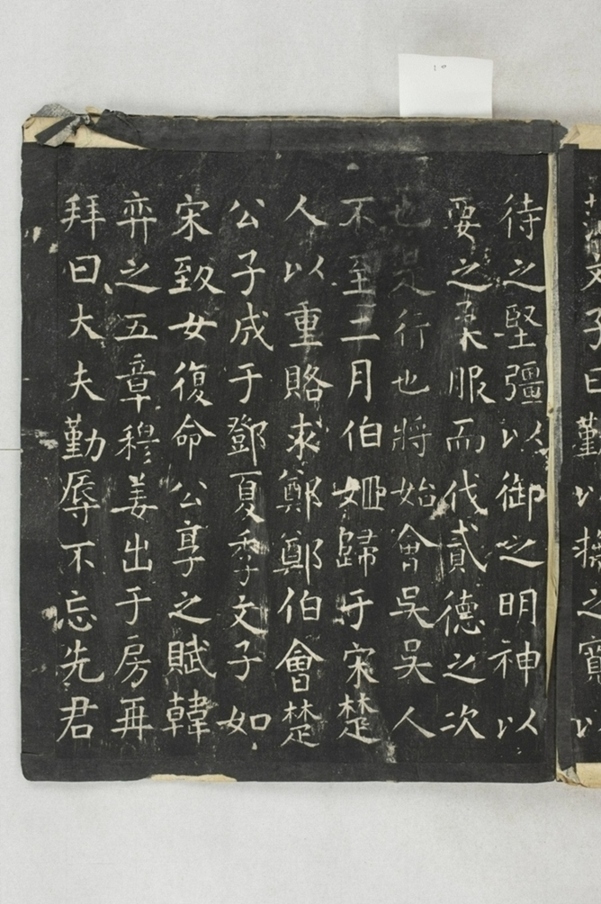 文子曰勤以撫之寬以
待之堅彊以御之明神以
要之柔服而伐貳德之次
也是行也將始會吳吳人
不至二月伯姬歸于宋楚
人以重賂求鄭鄭伯會楚
公子成于鄧夏季文子如
宋致女復命公享之賦韓
弈之五章穆姜出于房再
拜曰大夫勤辱不忘先君